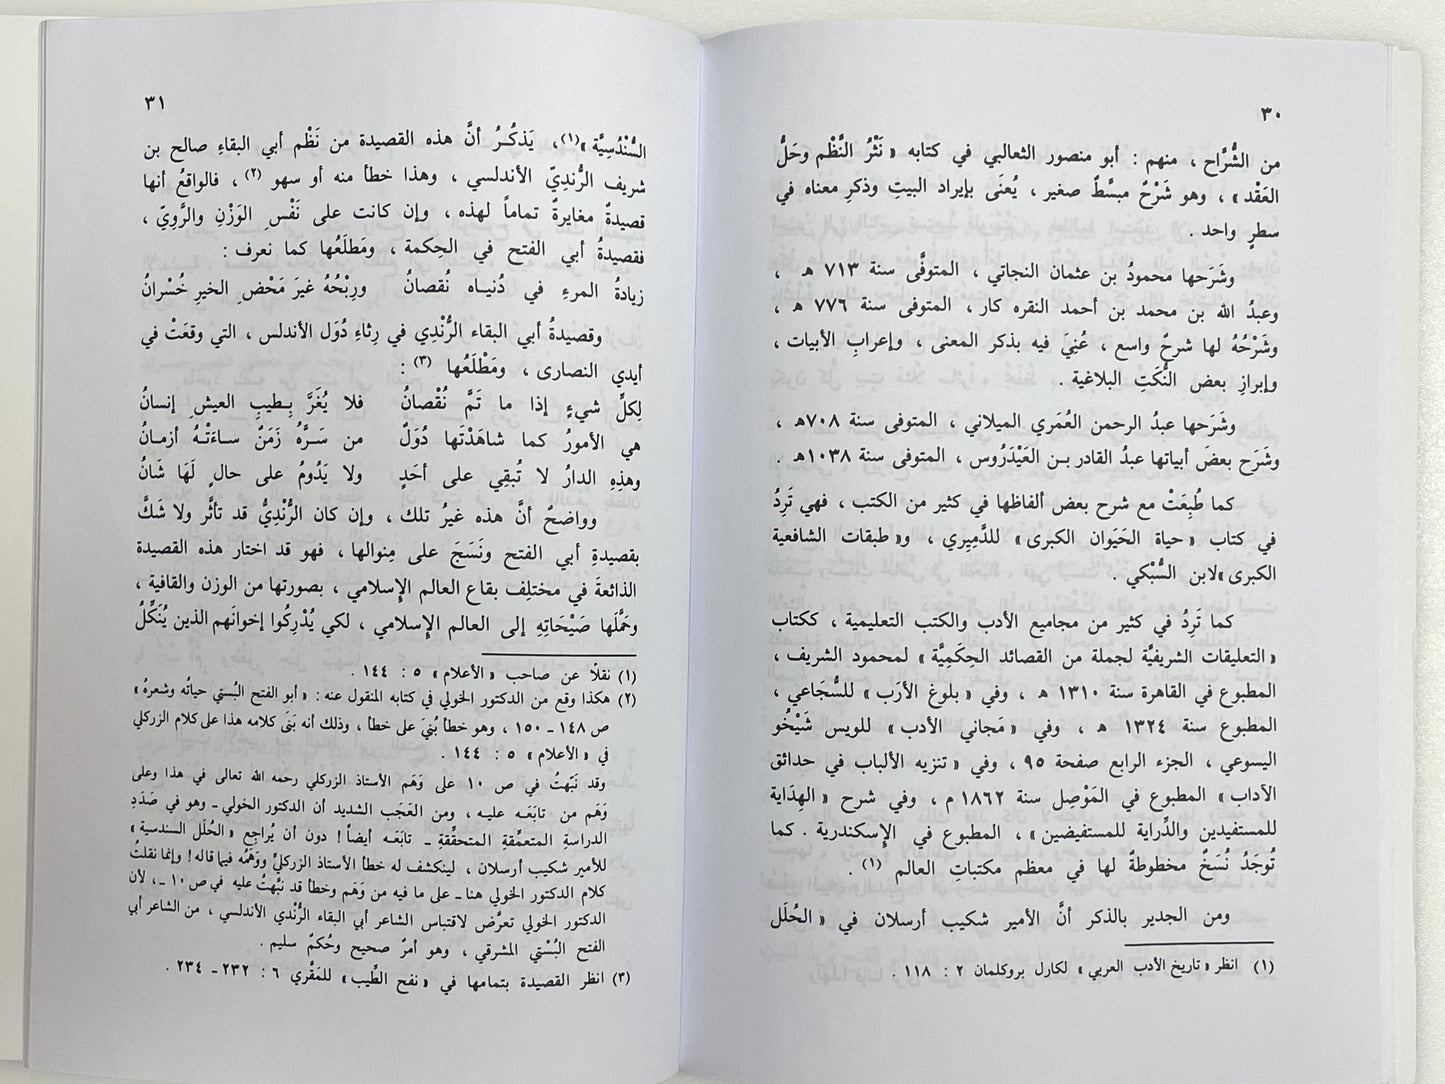 ٣٠
من الشُّراح ، منهم : أبو منصور الثعالبي في كتابه « نَثْرُ النَّظْم وحَلُّ
العَقْد » ، وهو شَرْحٌ مبسَّطٌ صغير ، يُعنَى بإيراد البيتِ وذكرِ معناه في
سطرٍ واحد .
وشَرَحها محمودُ بن عثمان النجاتي ، المتوفَّى سنة ٧١٣ هـ ،
وعبدُ الله بن محمد بن أحمد النقره كار ، المتوفى سنة ٧٧٦ هـ ،
وشَرْحُهُ لها شرحٌ واسع ، عُنِيَ فيه بذكر المعنى ، وإعرابِ الأبيات ،
وإبرازِ بعض النُّكَتِ البلاغية .
وشَرَحها عبدُ الرحمن العُمَري الميلاني ، المتوفى سنة ٧٠٨هـ ،
وشَرَح بعضَ أبياتها عبدُ القادر بـن العَيْدَرُوس ، المتوفى سنة ١٠٣٨هـ .
كما طُبِعَتْ مع شرح بعض ألفاظها في كثير من الكتب ، فهي تَرِدُ
في كتاب « حياة الحَيَوان الكبرى » للدَّمِيري ، و« طبقات الشافعية
الكبرى » لابن السُّبْكي .
كما تَرِدُ في كثير من مجاميع الأدب والكتب التعليمية ، ككتاب
« التعليقات الشريفيَّة لجملة من القصائد الحِكَمِيَّة » لمحمود الشريف ،
المطبوع في القاهرة سنة ١٣١٠ هـ ، وفي « بلوغ الأرَب » للسُّجَاعي ،
المطبوع سنة ١٣٢٤ هـ ، وفي « مَجاني الأدب » للويس شَيْخُو
اليسوعي ، الجزء الرابع صفحة ٩٥ ، وفي « تنزيه الألباب في حدائق
الآداب » المطبوع في المَوْصِل سنة ١٨٦٢ م ، وفي شرح « الهِدَاية
للمستفيدين والدِّراية للمستفيضين » ، المطبوع في الإسكندرية . كما
تُوجَدُ نُسَخٌ مخطوطةٌ لها في معظم مكتباتِ العالم (١) .
ومن الجدير بالذكر أنَّ الأمير شكيب أرسلان في « الحُلَل
(١) انظر « تاريخ الأدب العربي » لكارل بروكلمان ٢ : ١١٨ .
٣١
السُّنْدُسِيَّة » (١) ، يَذكُـرُ أنَّ هذه القصيدة من نَظْم أبي البقاءِ صالح بن
شريف الرُّنديّ الأندلسي ، وهذا خطأ منه أو سهو (٢) ، فالواقعُ أنها
قصيدةٌ مغايرةٌ تماماً لهذه ، وإن كانت على نَفْسِ الوَزْنِ والرَّويّ ،
فقصيدةُ أبي الفتح في الحِكمة ، ومَطلَعُها كما نعرف :
زيادةُ المرءِ في دُنيـاه نُقصانُ ورِبْحُهُ غيرَ مَحْضِ الخيرِ خُسْرانُ
وقصيدةُ أبي البقاء الرُّنْدِي في رِثاءِ دُوَل الأندلس ، التي وقعَتْ في
أيدي النصارى ، ومَطْلَعُها (٣) :
لِكلِّ شيءٍ إذا ما تَمَّ نُقْصانُ فلا يُغَرَّ بِـطيبِ العيشِ إنسانُ
هي الأمورُ كما شاهَدْتَها دُوَلٌ من سَـرَّهُ زَمَنٌ ساءَتْـهُ أزمـانُ
وهذِهِ الدارُ لا تُبقِي على أحَدٍ ولا يَدُومُ على حالٍ لَهَا شَانُ
وواضحٌ أنَّ هذه غيرُ تلك ، وإن كان الرُّنْدِيُّ قد تأثَّر ولا شَكَّ
بقصيدةِ أبي الفتح ونَسَجَ على مِنوالها ، فهو قد اختار هذه القصيدة
الذائعةَ في مختلِف بقاع العالم الإسلامي ، بصورتها من الوزن والقافية ،
وحَمَّلَها صَيْحَاتِهِ إلى العالم الإسلامي ، لكي يُدْرِكُوا إخوانَهم الذين يُنَكِّلُ
(١) نقلاً عن صاحب « الأعلام » ٥ : ١٤٤ .
(٢) هكذا وقع من الدكتور الخولي في كتابه المنقول عنه : « أبو الفتح البُستي حياتُه وشعرُهُ »
ص ١٤٨ - ١٥٠ ، وهو خطأ بُنيَ على خطأ ، وذلك أنه بَنَى كلامه هذا على كلام الزركلي
في « الأعلام » ٥ : ١٤٤ .
وقد نَبّهتُ في ص ١٠ على وَهَم الأستاذ الزركلي رحمه الله تعالى في هذا وعلى
وَهَم من تابَعَـه عليـه ، ومن العَجَب الشديد أن الدكتور الخولي ـ وهو في صَدَدِ
الدراسةِ المتعمِّقةِ المتحقِّقةِ ـ تابَعَـه أيضاً ! دون أن يُراجِع « الحُلَل السندسية »
للأمير شكيب أرسلان ، لينكشف له خطأ الأستاذ الزركليّ ووَهَمُه فيما قاله ! وإنما نقلتُ
كلام الدكتور الخولي هنا ـ على ما فيه من وَهَم وخطأ قد نبَّهتُ عليه في ص ١٠ ـ ، لأن
الدكتور الخولي تعرَّض لاقتباس الشاعر أبي البقاء الرُّنْدي الأندلسي ، من الشاعر أبي
الفتح البُسْتي المشرقي ، وهو أمرٌ صحيح وحُكمٌ سليم .
(٣) انظر القصيدة بتمامها في « نفح الطِّيب » للمَقَّري ٦ : ٢٣٢ ـ ٢٣٤ .